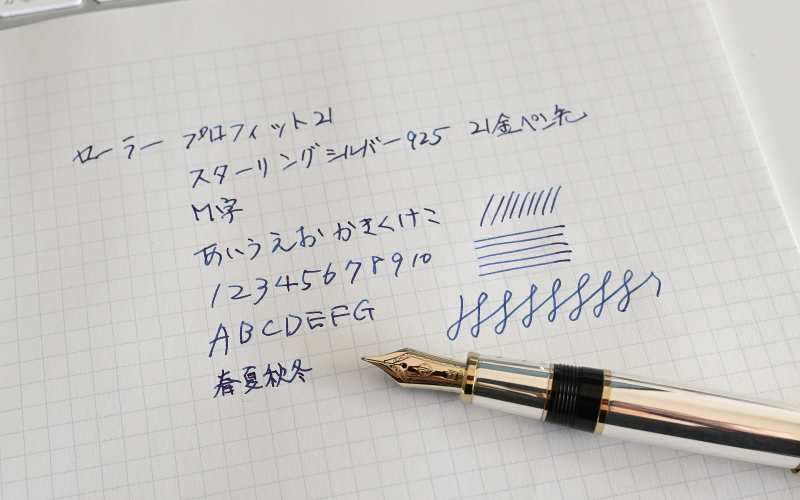 セーラー プロフィット21
スターリングシルバー925 21金ペン先
M字
あいうえお かきくけこ
1 2 3 4 5 6 7 8 9 10
A B C D E F G
春夏秋冬